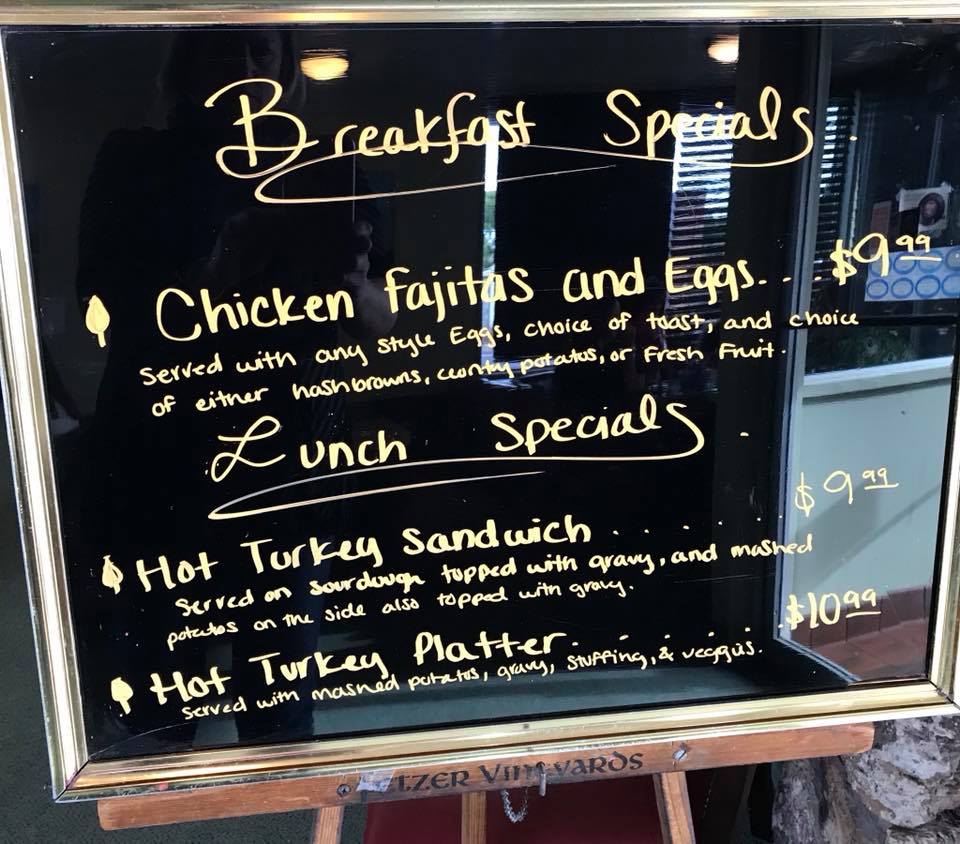 Breakfast Specials.
Chicken Fajitas and Eggs. . . . $9.99
Served with any style Eggs, choice of toast, and choice
of either hashbrowns, country potatos, or Fresh Fruit.
Lunch Specials.
Hot Turkey Sandwich . . . . . . $9.99
Served on sourdough topped with gravy, and mashed
potatos on the side also topped with gravy.
Hot Turkey Platter . . . . . $10.99
Served with mashed potatos, gravy, stuffing, & veggies.
VINEYARDS